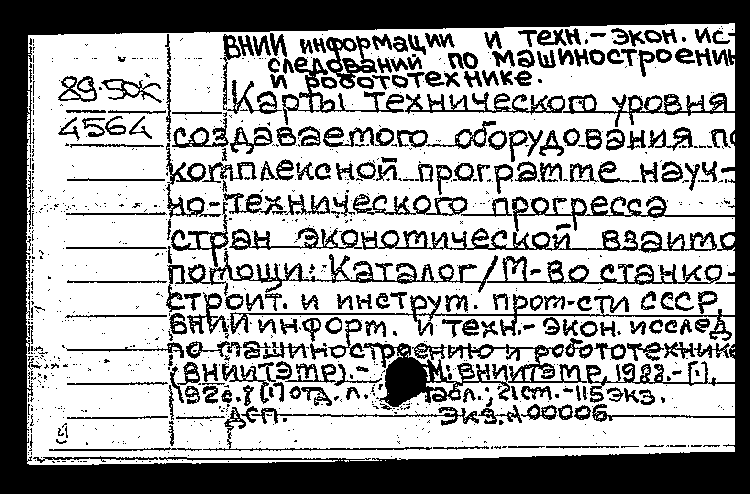 ВНИИ информации и техн.-экон. ис-
следований по машиностроению
и робототехнике.
89-50к
Карты технического уровня
4564
создаваемого оборудования по
комплексной программе науч-
но-технического прогресса
стран экономической взаимо
помощи: Каталог/М-во станко-
строит. и инструт. пром-сти СССР,
ВНИИ информ. и техн.-экон. исслед.
по машиностроению и робототехнике
(ВНИИТЭМР).- М: ВНИИТЭМР, 1988.-[1],
192с., [1] отд. л. табл.; 21см.-115экз.
ДСП. Экз.№00006.